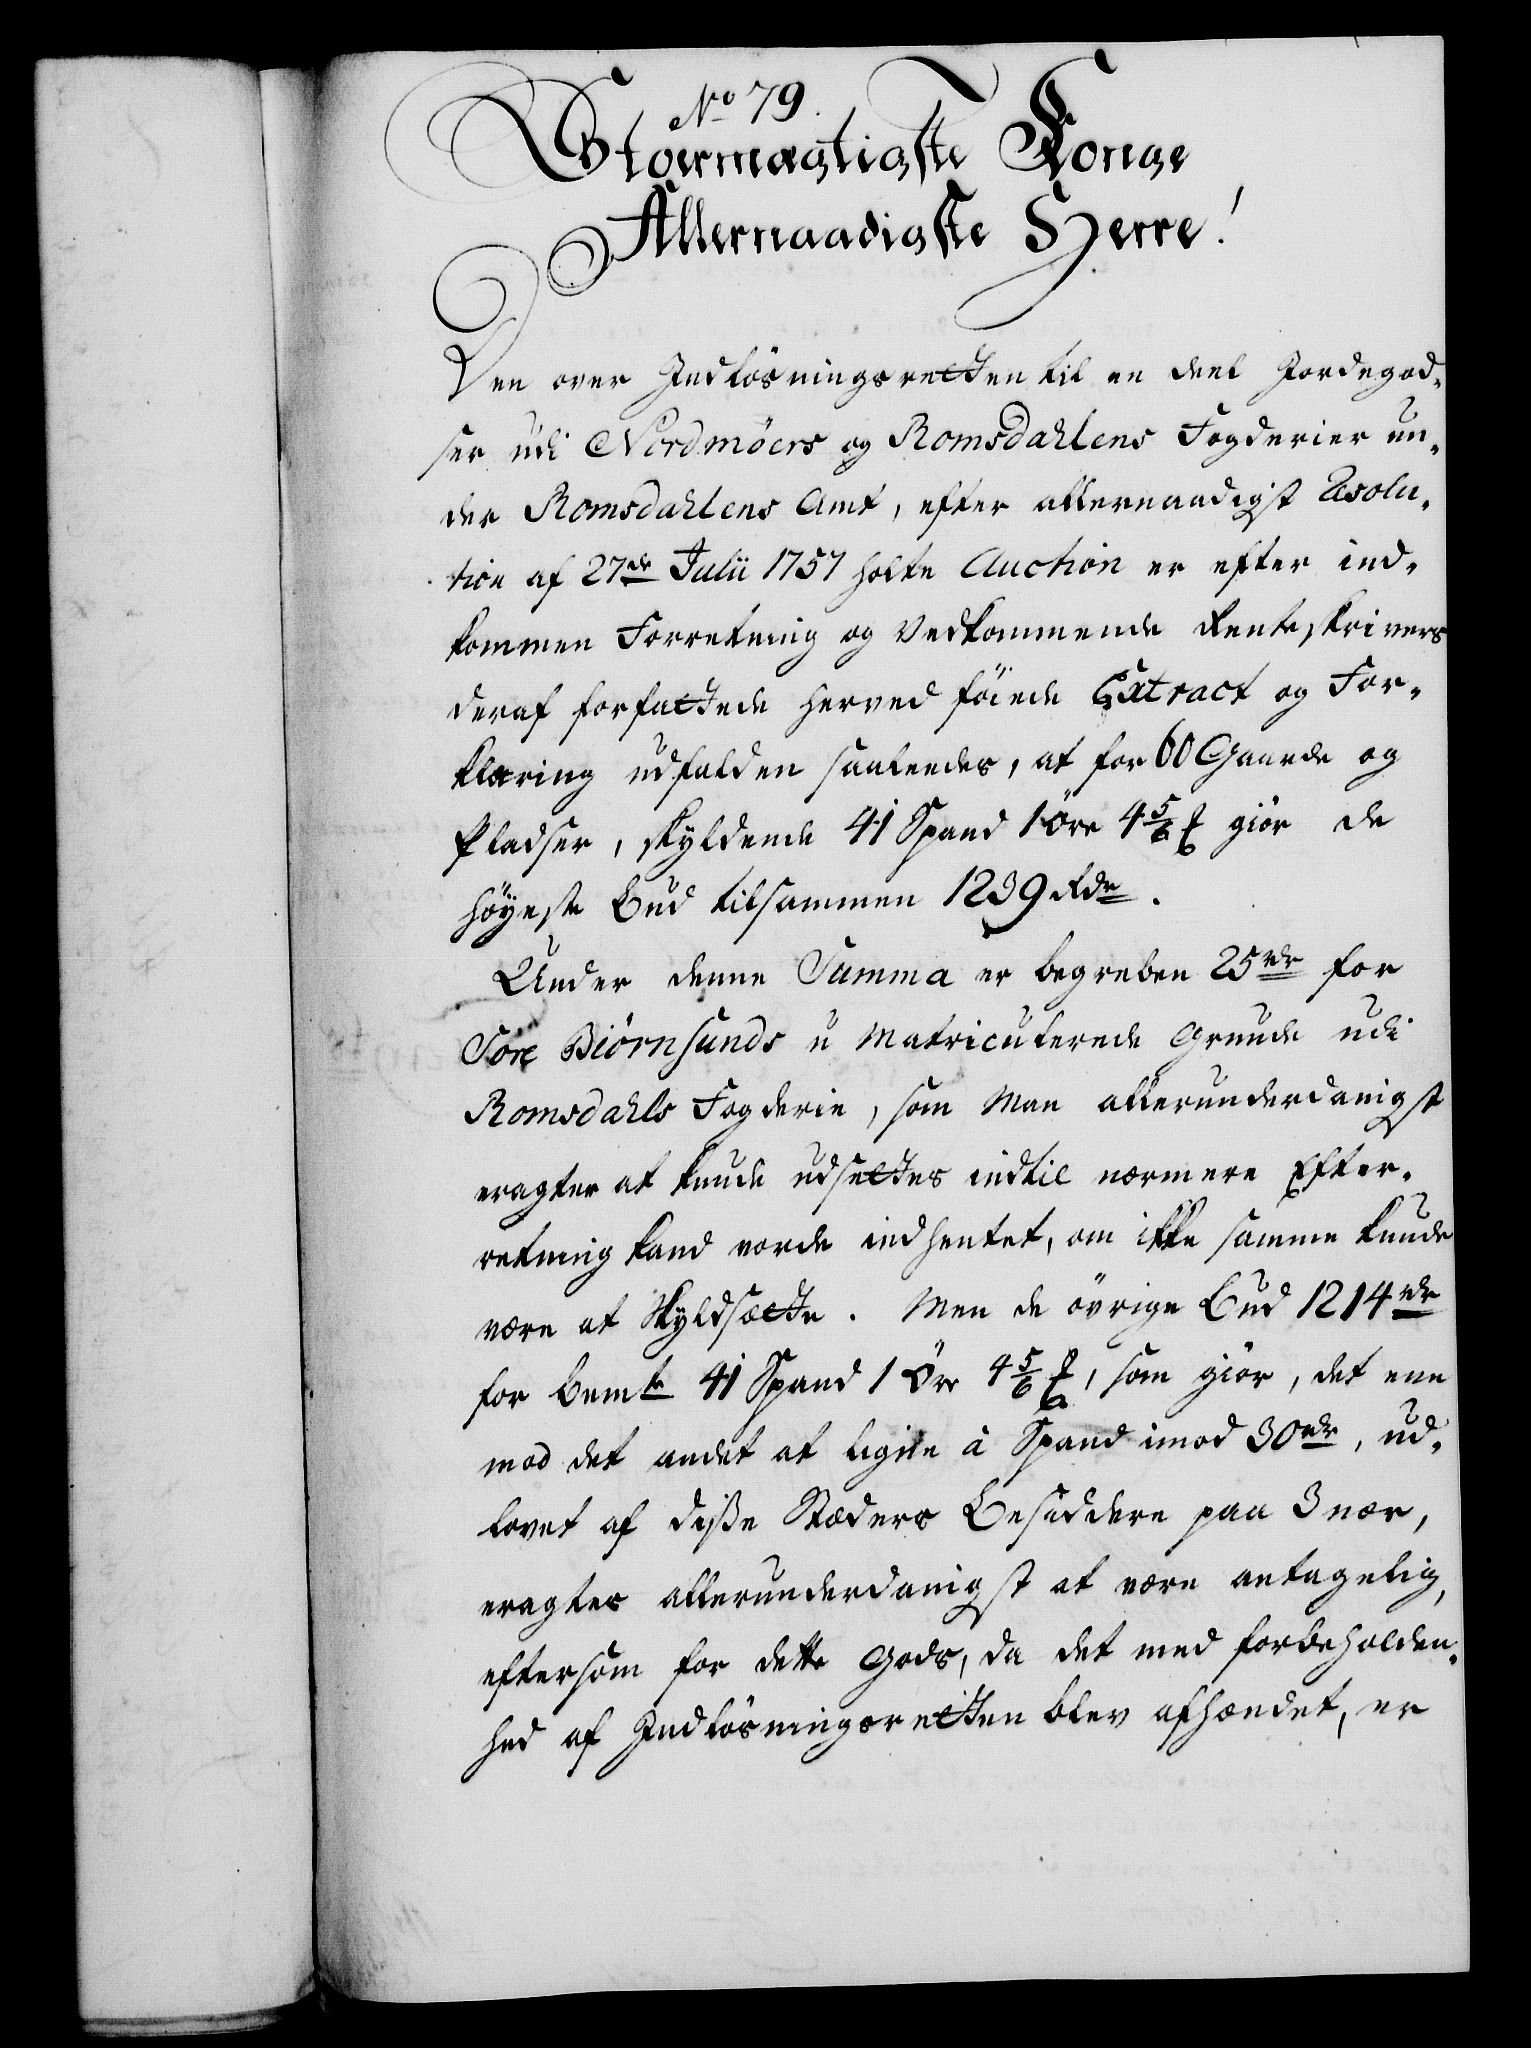 No 79.
Stormægtigste Konge
Allernaadigste Herre!
Den over Indløsningsretten til en deel Jordegod-
ser udi Nordmöers og Romsdahlens Fogderier un-
der Romsdahlens Amt, efter allernaadigst Resolu-
tion af 27de Julii 1757 holte Auction er efter ind-
kommen Forretning og Vedkommende Renteskrivers
deraf forfattede herved föiede Extract og For-
klæring udfalden saaleedes, at for 60 Gaarde og
Pladser, skyldende 41 Spand 1 Öre 4 5/6 giör de
höyeste Bud tilsammen 1239 Rdr.
Under denne Summa er begreben 25 rdr for
Tore Biörnsunds u Matriculerede Grunde udi
Romsdahls Fogderie, som Man allerunderdanigst
eragter at kunde udsettes indtil nærmere Efter-
retning kand vorde indhentet, om ikke samme kunde
være at Skyldsætte. Men de övrige Bud 1214 rdr
for bemte 41 Spand 1 Öre 4 5/6, som giör, det ene
mod det andet at ligne à Spand imod 30 rdr, ud-
lovet af disse Stæders Besiddere paa 3 nær,
eragtes allerunderdanigst at være antagelig,
eftersom for dette Gods, da det med forbeholden-
hed af Indlösningsretten blev afhændet, er